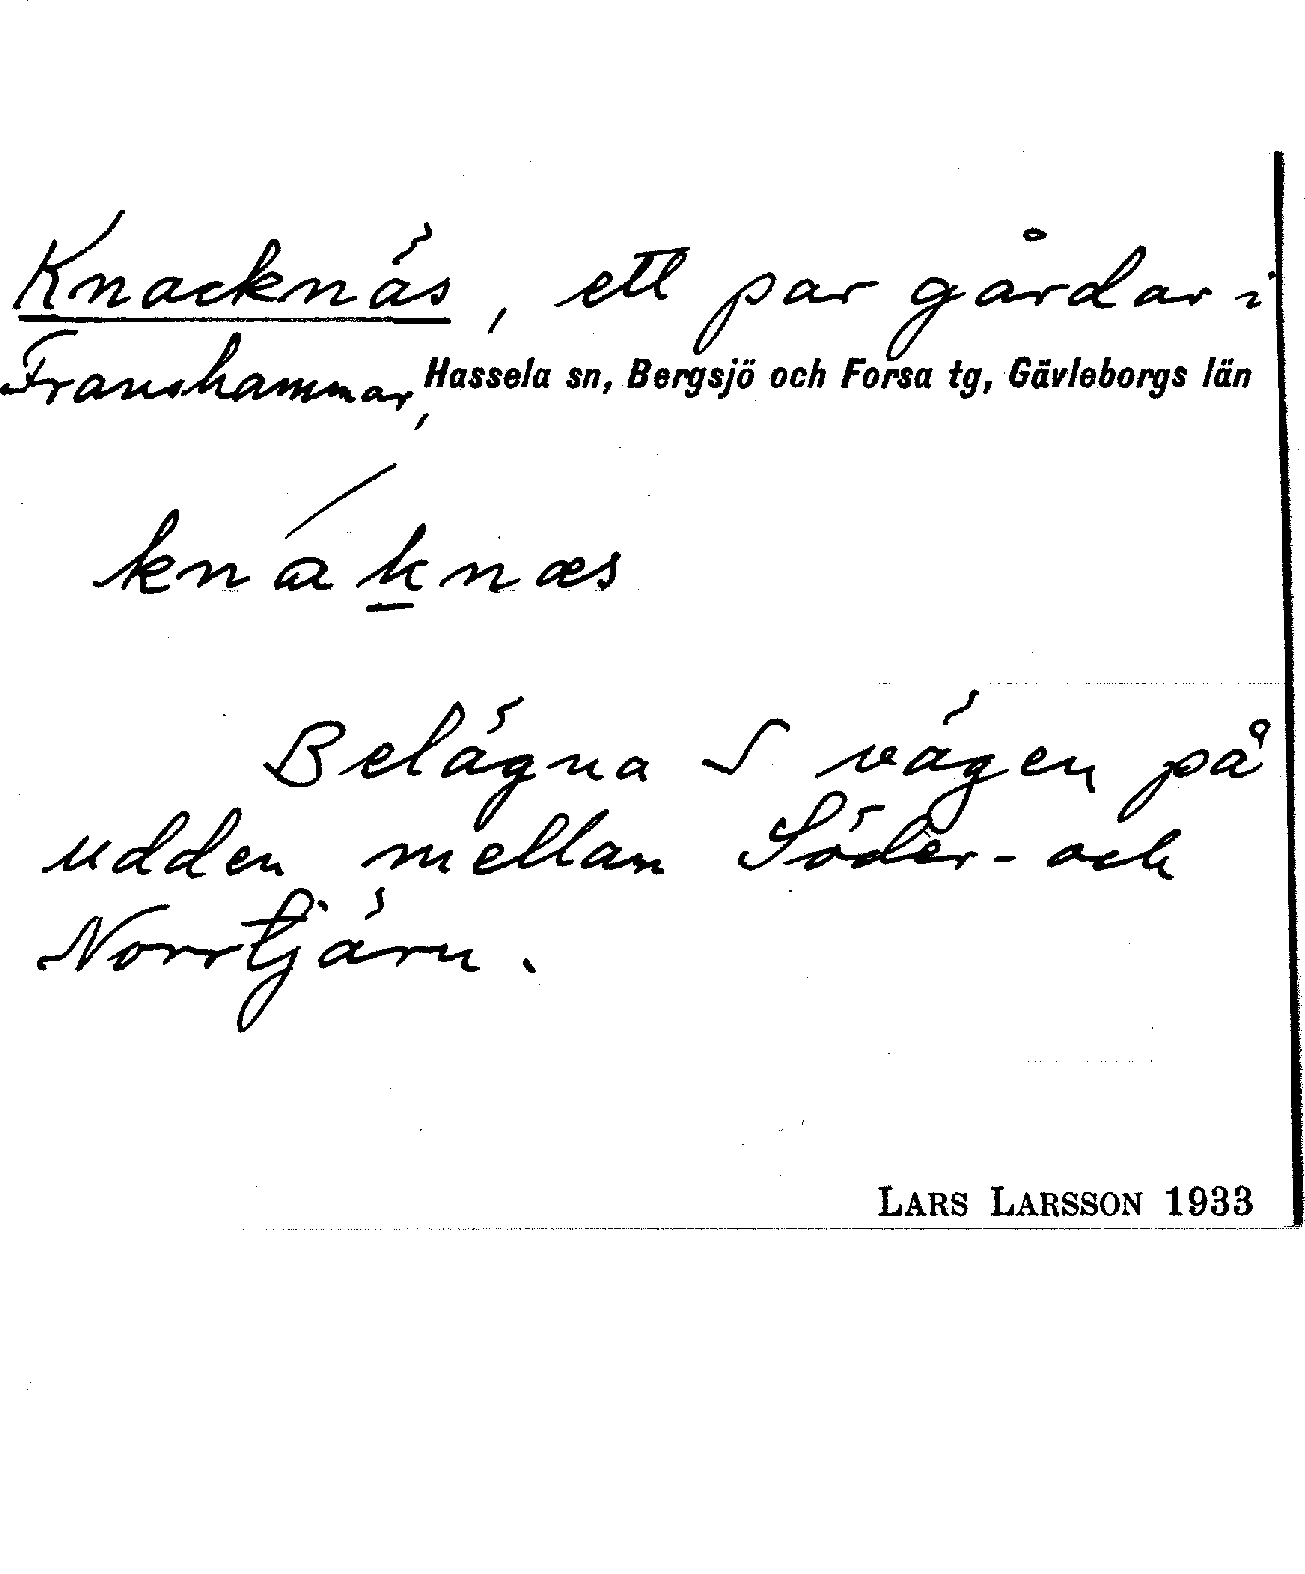 Knacknäs, ett par gårdar i
Franshammar, Hassela sn, Bergsjö och Forsa tg, Gävleborgs län
knáknæs
Belägna S vägen på
udden mellan Söder- och
Norrtjärn.
LARS LARSSON 1933